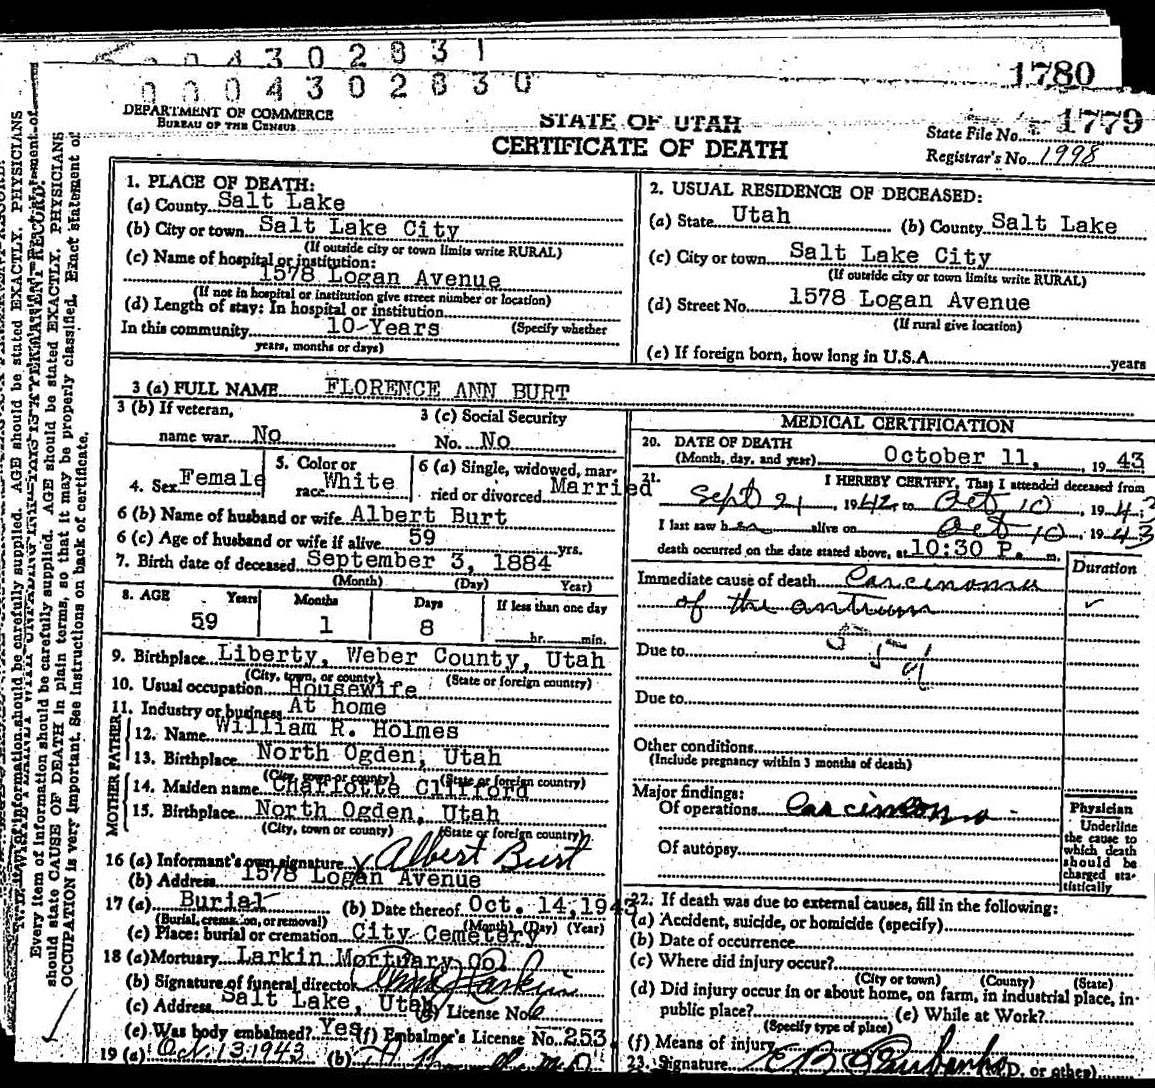 0 4 3 0 2 8 3 1
0 0 0 4 3 0 2 8 3 0
1780
DEPARTMENT OF COMMERCE
BUREAU OF THE CENSUS
STATE OF UTAH
CERTIFICATE OF DEATH
State File No. 1779
Registrar's No. 1998
1. PLACE OF DEATH:
(a) County Salt Lake
(b) City or town Salt Lake City
(If outside city or town limits write RURAL)
(c) Name of hospital or institution:
1578 Logan Avenue
(If not in hospital or institution give street number or location)
(d) Length of stay: In hospital or institution
In this community 10-Years (Specify whether
years, months or days)
2. USUAL RESIDENCE OF DECEASED:
(a) State Utah (b) County Salt Lake
(c) City or town Salt Lake City
(If outside city or town limits write RURAL)
(d) Street No. 1578 Logan Avenue
(If rural give location)
(e) If foreign born, how long in U.S.A. years
3 (a) FULL NAME FLORENCE ANN BURT
3 (b) If veteran,
name war No
3 (c) Social Security
No. No
4. Sex Female
5. Color or
race White
6 (a) Single, widowed, mar-
ried or divorced Married
6 (b) Name of husband or wife Albert Burt
6 (c) Age of husband or wife if alive 59 yrs.
7. Birth date of deceased September 3, 1884
(Month) (Day) Year)
8. AGE Years Months Days If less than one day
59 1 8 hr. min.
9. Birthplace Liberty, Weber County, Utah
(City, town, or county) (State or foreign country)
10. Usual occupation Housewife
11. Industry or business At home
FATHER
12. Name William R. Holmes
13. Birthplace North Ogden, Utah
(City, town or county) (State or foreign country)
MOTHER
14. Maiden name Charlotte Clifford
15. Birthplace North Ogden, Utah
(City, town or county) (State or foreign country)
16 (a) Informant's own signature x Albert Burt
(b) Address 1578 Logan Avenue
17 (a) Burial (b) Date thereof Oct. 14, 1943
(Burial, cremation, or removal) (Month) (Day) (Year)
(c) Place: burial or cremation City Cemetery
18 (a) Mortuary Larkin Mortuary Co
(b) Signature of funeral director Larkin
(c) Address Salt Lake, Utah License No.
(e) Was body embalmed? Yes (f) Embalmer's License No. 253
19 (a) Oct. 13 1943 (b)
MEDICAL CERTIFICATION
20. DATE OF DEATH
(Month, day, and year) October 11, 1943
21. I HEREBY CERTIFY, That I attended deceased from
Sept 21, 1942, to Oct. 10, 1943
I last saw her alive on Oct 10, 1943
death occurred on the date stated above, at 10:30 P. m.
Duration
Immediate cause of death Carcinoma
of the antrum
Due to
Due to
Other conditions
(Include pregnancy within 3 months of death)
Major findings:
Of operations Carcinoma
Of autopsy
Physician
Underline
the cause to
which death
should be
charged sta-
tistically
22. If death was due to external causes, fill in the following:
(a) Accident, suicide, or homicide (specify)
(b) Date of occurrence
(c) Where did injury occur?
(City or town) (County) (State)
(d) Did injury occur in or about home, on farm, in industrial place, in-
public place? (e) While at Work?
(Specify type of place)
(f) Means of injury
23. Signature (M.D. or other)
Every item of information should be carefully supplied. AGE should be stated EXACTLY. PHYSICIANS
should state CAUSE OF DEATH in plain terms, so that it may be properly classified. Exact statement of
OCCUPATION is very important. See instructions on back of certificate.